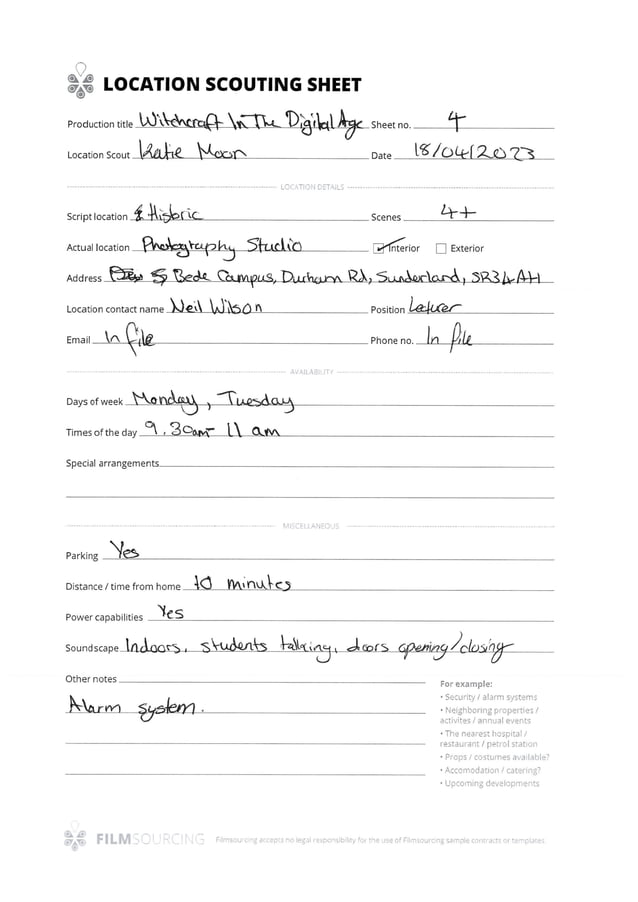 LOCATION SCOUTING SHEET
Production title Witchcraft In The Digital Age Sheet no. 4
Location Scout Katie Moon Date 18/04/2023
LOCATION DETAILS
Script location Historic Scenes 4+
Actual location Photography Studio Interior Exterior
Address Bede Campus, Durham Rd, Sunderland, SR3 4AH
Location contact name Neil Wilson Position Lecturer
Email In file Phone no. In file
AVAILABILITY
Days of week Monday, Tuesday
Times of the day 9.30am- 11 am
Special arrangements
MISCELLANEOUS
Parking Yes
Distance / time from home 10 minutes
Power capabilities Yes
Soundscape Indoors, students talking, doors opening/closing
Other notes
Alarm system.
For example:
• Security / alarm systems
• Neighboring properties /
activites / annual events
• The nearest hospital /
restaurant / petrol station
• Props / costumes available?
• Accomodation / catering?
• Upcoming developments
FILMSOURCING Filmsourcing accepts no legal responsibility for the use of Filmsourcing sample contracts or templates.